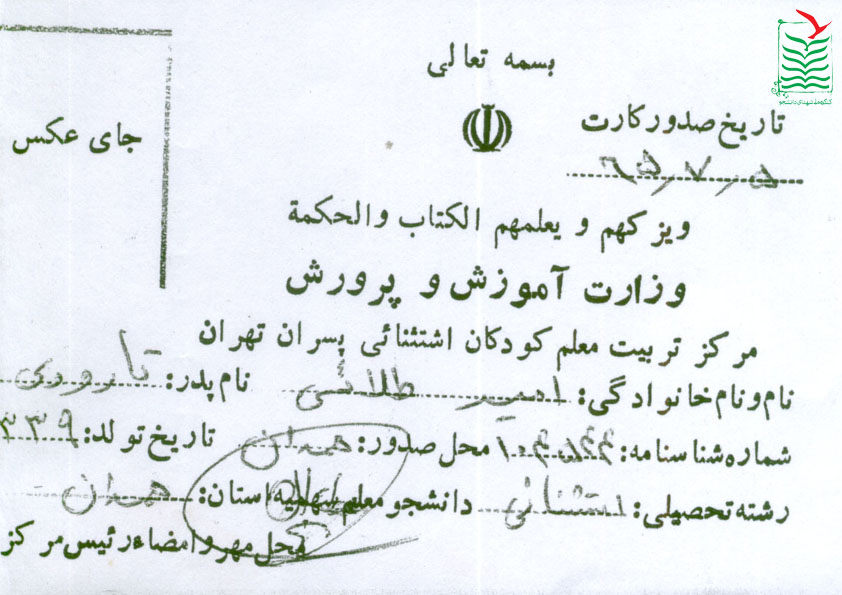 بسمه تعالی
تاریخ صدور کارت
۶۵٫۷٫۵
جای عکس
ویزکهم و یعلمهم الکتاب والحکمة
وزارت آموزش و پرورش
مرکز تربیت معلم کودکان اشتثنائی پسران تهران
نام و نام خانوادگی: امیر طلائی نام پدر:
شماره شناسنامه: محل صدور: همدان تاریخ تولد: ۳۳۹
رشته تحصیلی: استثنائی دانشجو معلم سهمیه استان: همدان
محل مهر و امضاء رئیس مرکز
کنگره ملی شهدای دانشجو